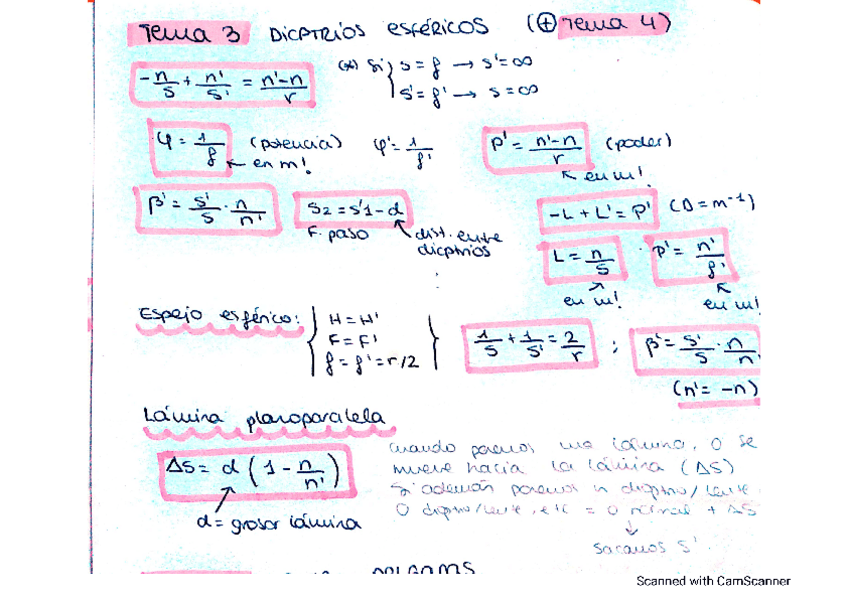 Tema 3 DIOPTRIOS ESFÉRICOS (⊕ Tema 4)
-n/s + n'/s' = n'-n/r
(*) Si { s = f → s' = ∞
s' = f' → s = ∞
φ = 1/f (potencia) φ' = 1/f'
← en m!
P' = n'-n/r (poder)
↖ en m!
β' = s'/s · n/n'
S2 = s'1 - d
F. paso
dist. entre
dioptrios
-L + L' = P' (D = m⁻¹)
L = n/s P' = n'/f'
en m! en m!
Espejo esférico: { H = H'
F = F'
f = f' = r/2 }
1/s + 1/s' = 2/r ; β' = s'/s · n/n'
(n' = -n)
Lámina planoparalela
Δs = d (1 - n/n')
d = grosor lámina
cuando ponemos una lámina, O se
mueve hacia la lámina (Δs)
Si además ponemos n dioptrio/lente,
O dioptrio/lente, etc = O normal + Δs
↓
sacamos s'.
Scanned with CamScanner